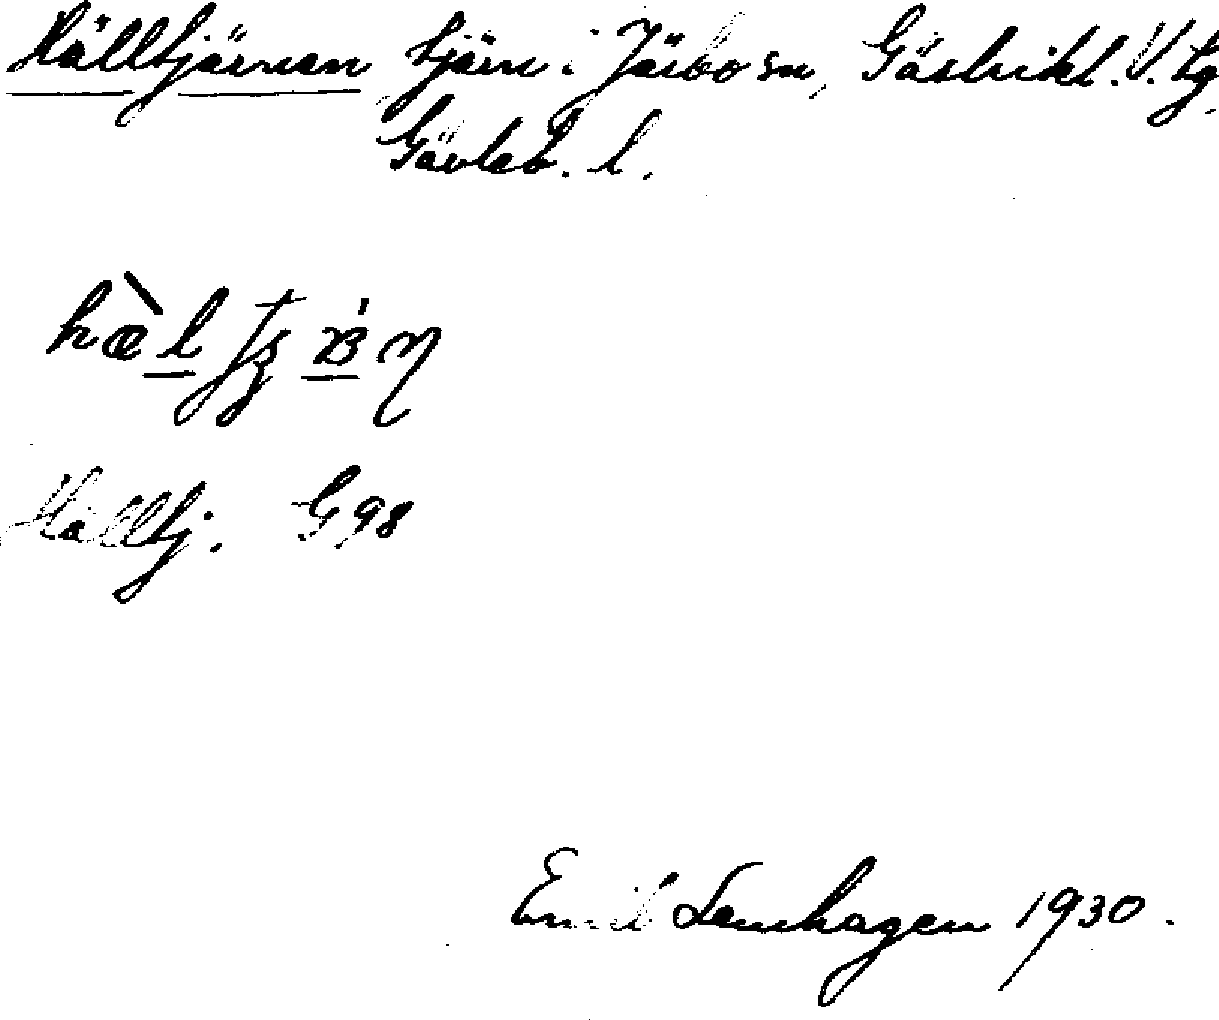 Hälltjärnen tjärn i Järbo sn, Gästrikl. V. tg.
Gävleb. l.
Hälltj. G98
Emil Lenhagen 1930.